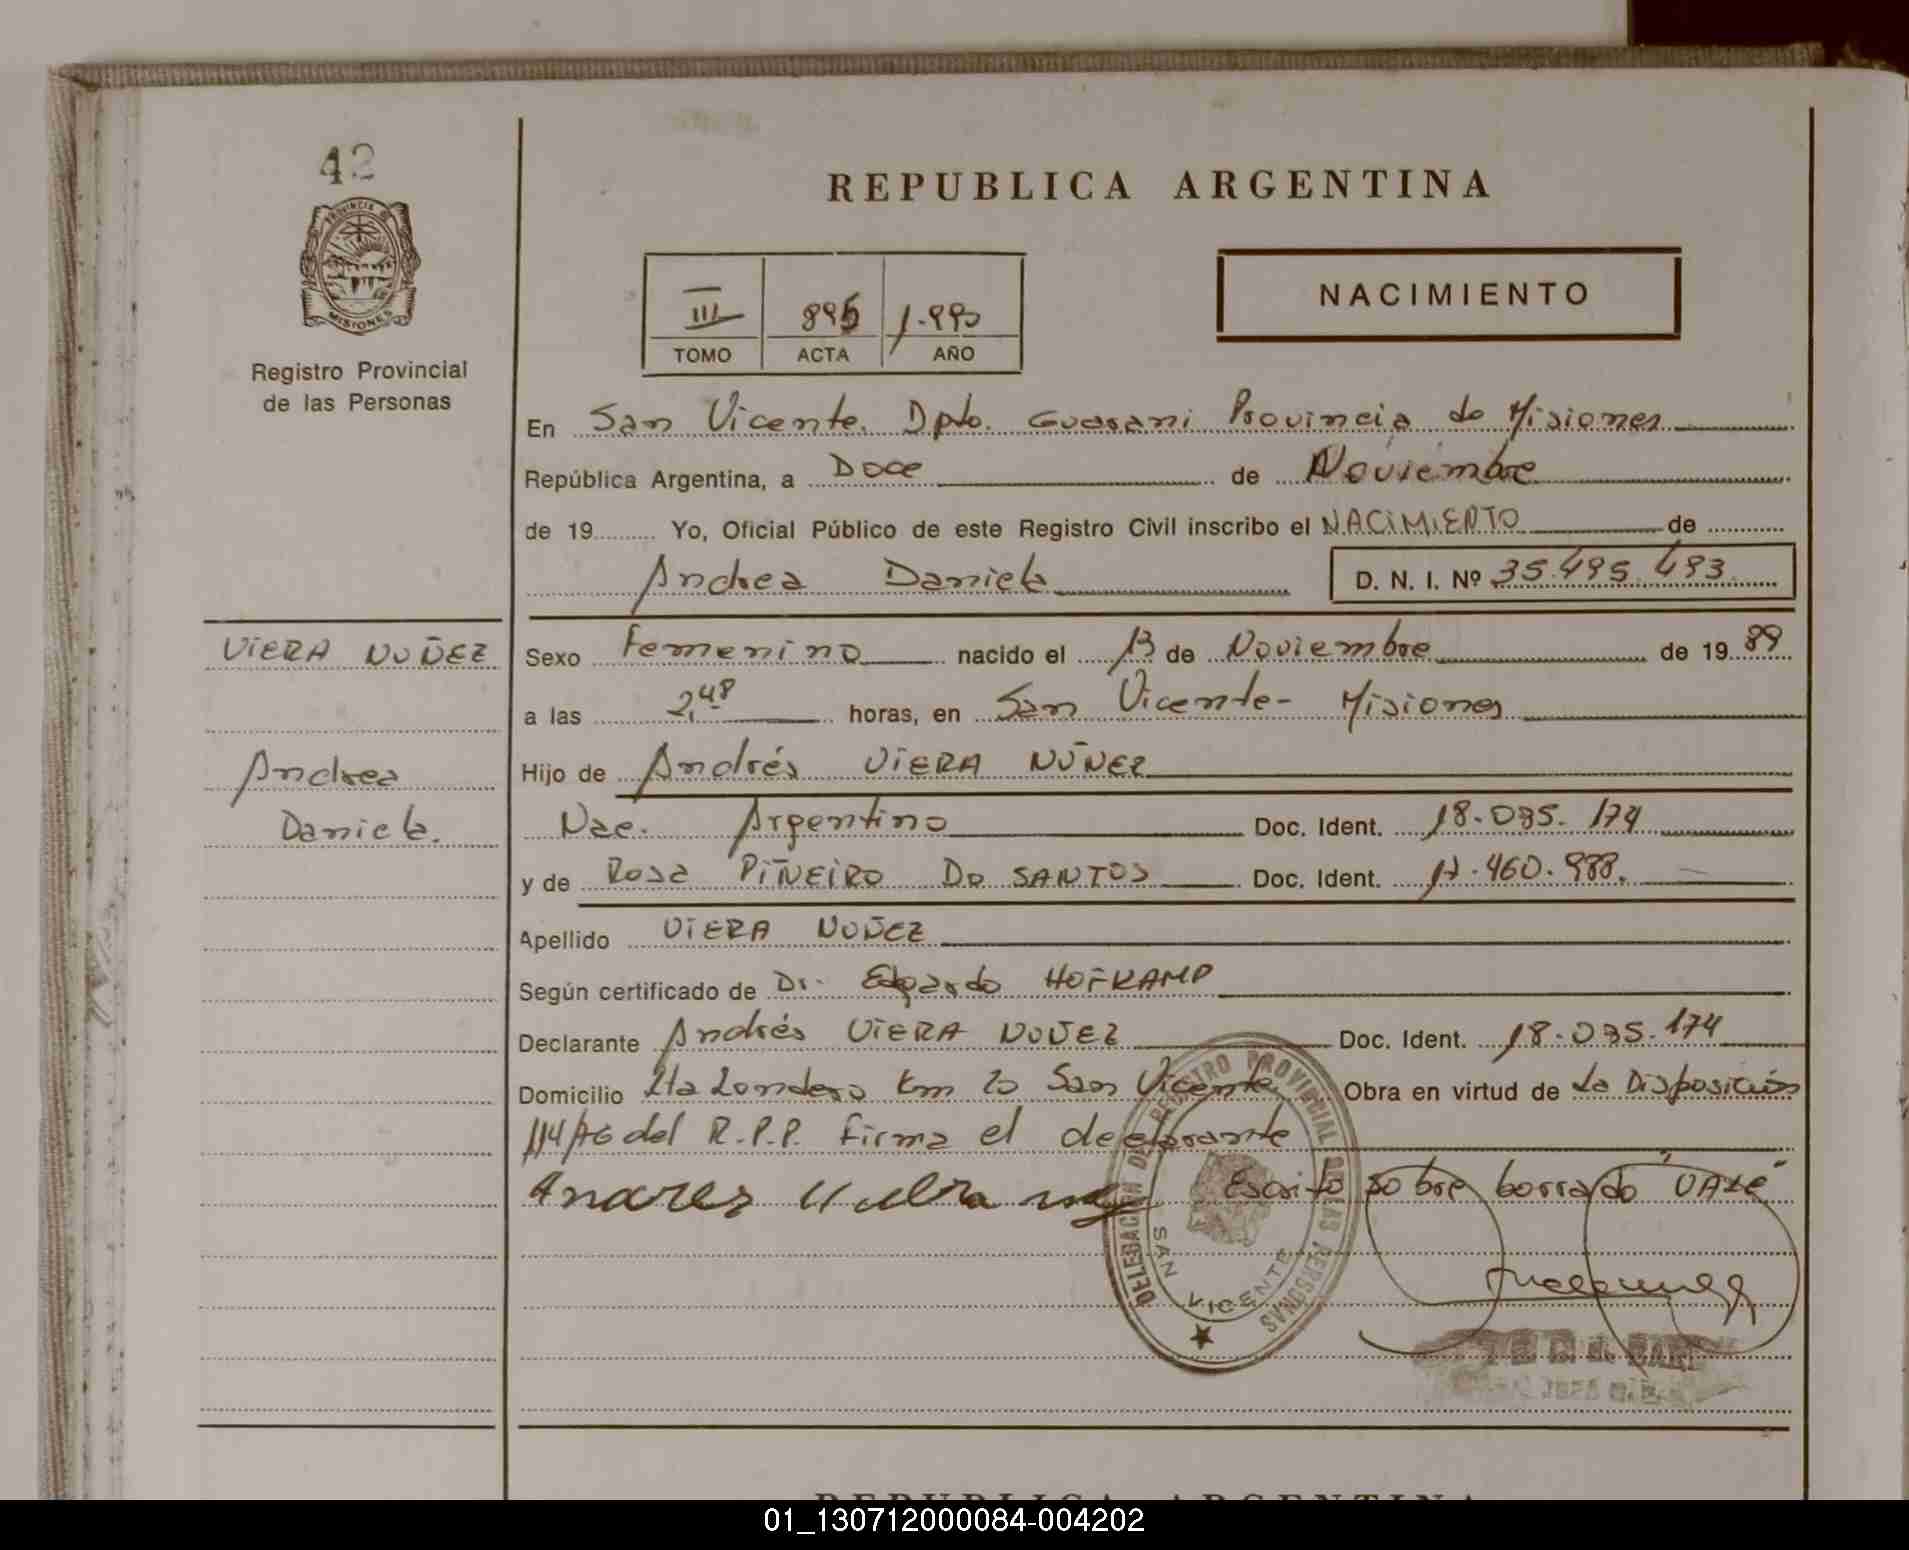 42
PROVINCIA DE
MISIONES
Registro Provincial
de las Personas
REPUBLICA ARGENTINA
III 895 1.990
TOMO ACTA AÑO
NACIMIENTO
En San Vicente. Dpto. Guarani Provincia de Misiones
República Argentina, a Doce de Noviembre
de 19 Yo, Oficial Público de este Registro Civil inscribo el NACIMIENTO de
Andrea Daniela D. N. I. Nº 35.495.493
VIERA NUÑEZ
Andrea
Daniela.
Sexo Femenino nacido el 13 de Noviembre de 1989
a las 2,48 horas, en San Vicente- Misiones
Hijo de Andrés VIERA NUÑEZ
Nac. Argentino Doc. Ident. 18.035.174
y de Rosa PIÑEIRO DO SANTOS Doc. Ident. 17.460.988.
Apellido VIERA NUÑEZ
Según certificado de Dr. Edgardo HOFKAMP
Declarante Andrés VIERA NUÑEZ Doc. Ident. 18.035.174
Domicilio Londero Km 20 San Vicente Obra en virtud de La Disposición
114/76 del R.P.P. Firma el declarante
Andres Viera Escrito sobre borrado "VALE"
DELEGACION DEL REGISTRO PROVINCIAL DE LAS PERSONAS
SAN VICENTE
REPUBLICA ARGENTINA
01_130712000084-004202